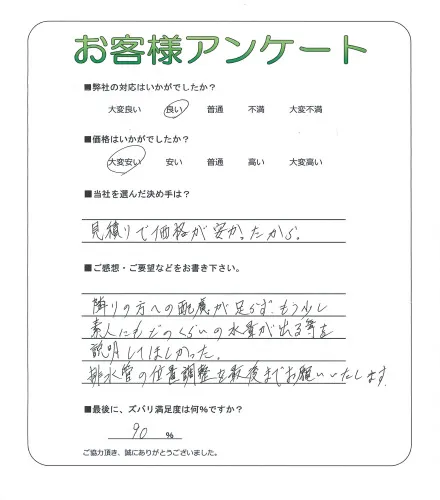 お客様アンケート
■弊社の対応はいかがでしたか?
大変良い 良い 普通 不満 大変不満
■価格はいかがでしたか?
大変安い 安い 普通 高い 大変高い
■当社を選んだ決め手は?
見積りで価格が安かったから。
■ご感想・ご要望などをお書き下さい。
隣りの方への配慮が足らず、もう少し
素人にもどのくらいの水質が出る等を
説明してほしかった。
排水管の位置調整を最後までお願いいたします。
■最後に、ズバリ満足度は何%ですか?
90 %
ご協力頂き、誠にありがとうございました。